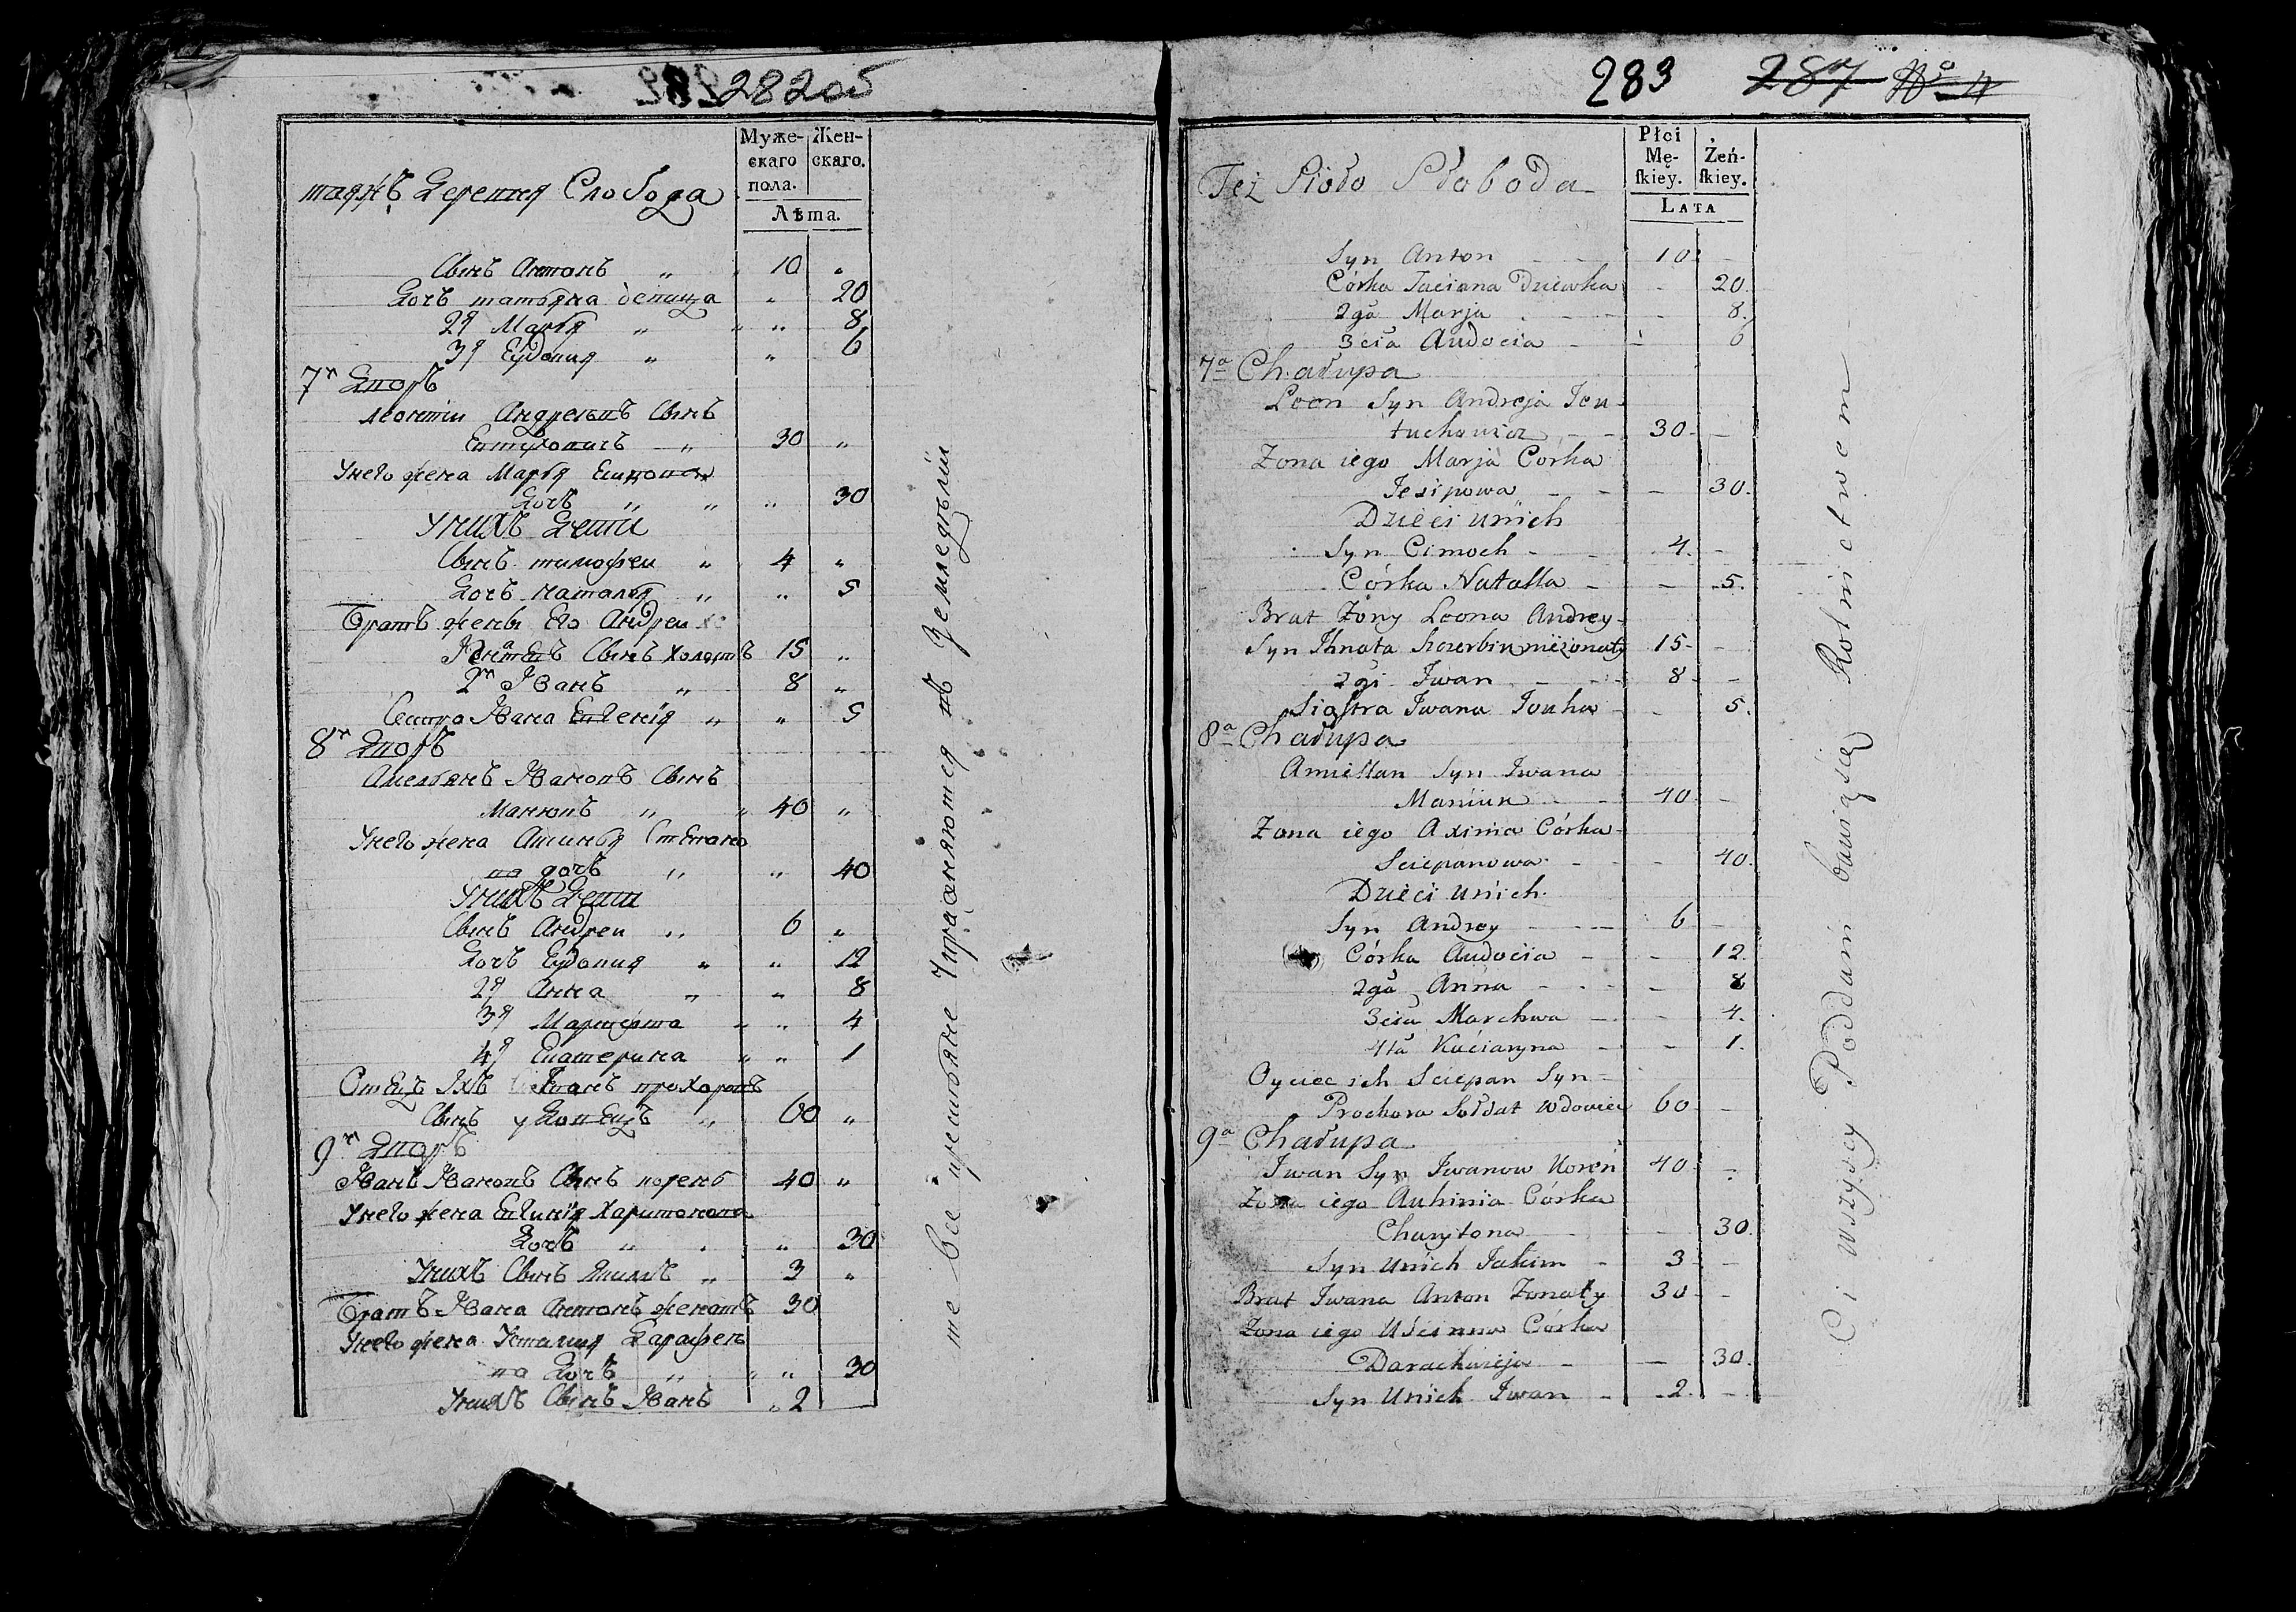 282об
Муже-
скаго
пола.
Жен-
скаго.
Лѣта.
таяжъ Деревня Слобода
Сынъ Антонъ " 10 "
Дочь татьяна девица " 20
2я Марья " " 8
3я Евдокия " " 6
7й Дворъ
леонтии Андреевъ Сынъ
Евтуховичъ " 30 "
Унего жена Марья
Дочь " " 30
Унихъ Дети
Сынъ тимофеи " 4 "
Дочь наталья " " 5
Братъ жены Его Андреи
Сынъ холостъ 15 "
2й Иванъ " 8 "
Сестра Ивана Евгения " " 5
8й Дворъ
Амельянъ Ивановъ Сынъ
Манюкъ " 40 "
Унего жена Аксинья Степано
ва дочь " " 40
Унихъ Дети
Сынъ Андреи " 6 "
Дочь Евдокия " " 12
2я Анна " " 8
3я " " 4
4я Екатерина " " 1
Отецъ Ихъ прохоровъ
Сынъ " 60 "
9й Дворъ
Иванъ Ивановъ Сынъ корень 40 "
Унего жена Харитонова
Дочь " " 30
Унихъ Сынъ Якимъ " 3 "
Братъ Ивана Антонъ женатъ 30
Унего жена Устиния Дарафеи
ва Дочь " " 30
Унихъ Сынъ Иванъ " 2
те все крестьяне Упражняются въ Земледѣлии
283 287 № 4
Płci
Mę-
ſkiey.
Żeń-
ſkiey.
LATA
Też Sioło Słoboda
Syn Anton - 10 -
Córka Taciana Dziewka - 20.
2ga Marja - - 8.
3cia Audocia - - 6
7a Chałupa
Leon Syn Andreja Jeu-
tuchowicz - 30 -
Zona iego Marja Corka
Jesipowa - - 30.
Dzieci unich
Syn Cimoch - 4. -
Córka Natalla - - 5.
Brat Zony Leona Andrey
Syn Ihnata Szczerbin nieżonaty 15 -
2gi Iwan - 8 -
Siostra Iwana Jouha - - 5.
8a Chałupa
Amiellan Syn Iwana
Maniuk - 40 -
Zona iego Axinia Córka
Sciepanowa - - 40.
Dzieci unich.
Syn Andrey - 6 -
Córka Audocia - - 12.
2ga Anna - - 8
3cia Marchwa - - 4.
4ta Kaciaryna - - 1.
Oyciec ich Sciepan Syn
Prochora Sołdat wdowiec 60 -
9a Chałupa
Iwan Syn Iwanow Koreń 40 -
Zona iego Auhinia Córka
Charytona - - 30.
Syn Unich Jakim - 3 -
Brat Iwana Anton Zonaty 30 -
Zona iego Uścinna Córka
Darachwieja - - 30.
Syn Unich Iwan - 2. -
Ci wszyscy Poddani bawią się Rolnictwem